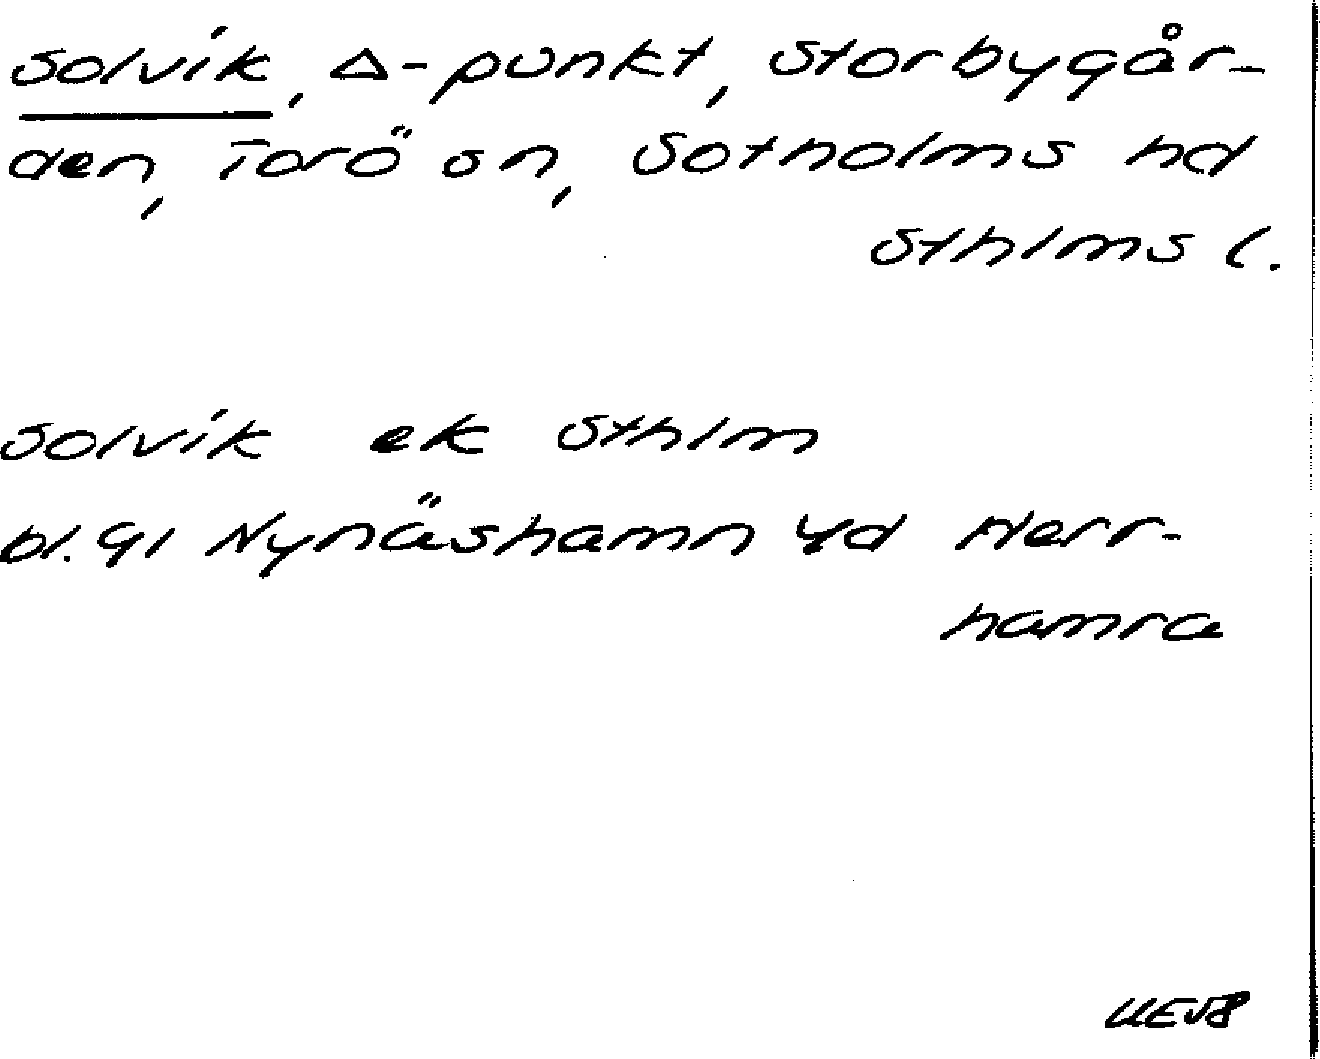 Solvik, Δ-punkt, Storbygår-
den, Torö sn, Sotholms hd
Sthlms l.
Solvik ek Sthlm
bl. 91 Nynäshamn 4d Herr-
hamra
UE58